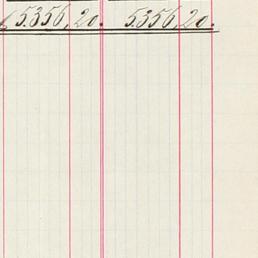 5356,20. 5356,20.